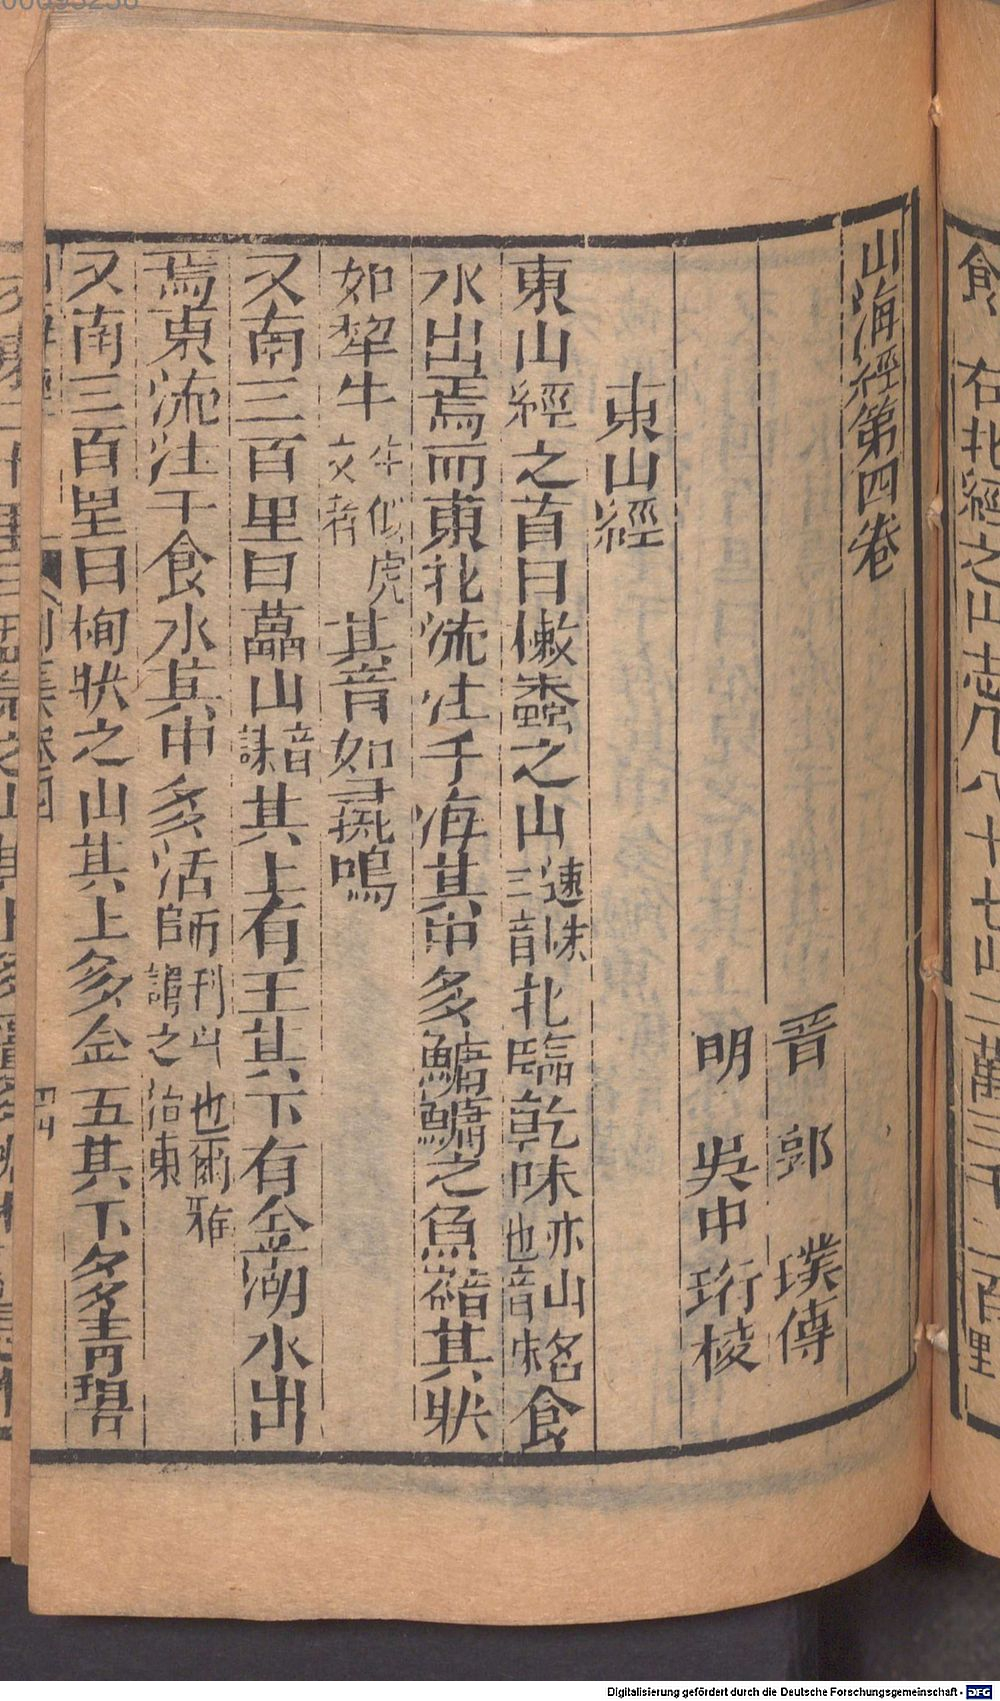 食　在北經之山志凡八十七山二萬三千二百里
山海經第四卷
晋　郭　璞傳
明　吳中珩校
東山經
東山經之首曰樕𧑤之山速株二音北臨乾昧亦山名也音妹食
水出焉而東北流注于海其中多鱅鱅之魚音容其狀
如犂牛牛似虎文者其音如彘鳴
又南三百里曰藟山音誄其上有王其下有金湖水出
焉東流注于食水其中多活師
又南三百里曰栒狀之山其上多金五其下多青碧
00093230
Digitalisierung gefördert durch die Deutsche Forschungsgemeinschaft - DFG